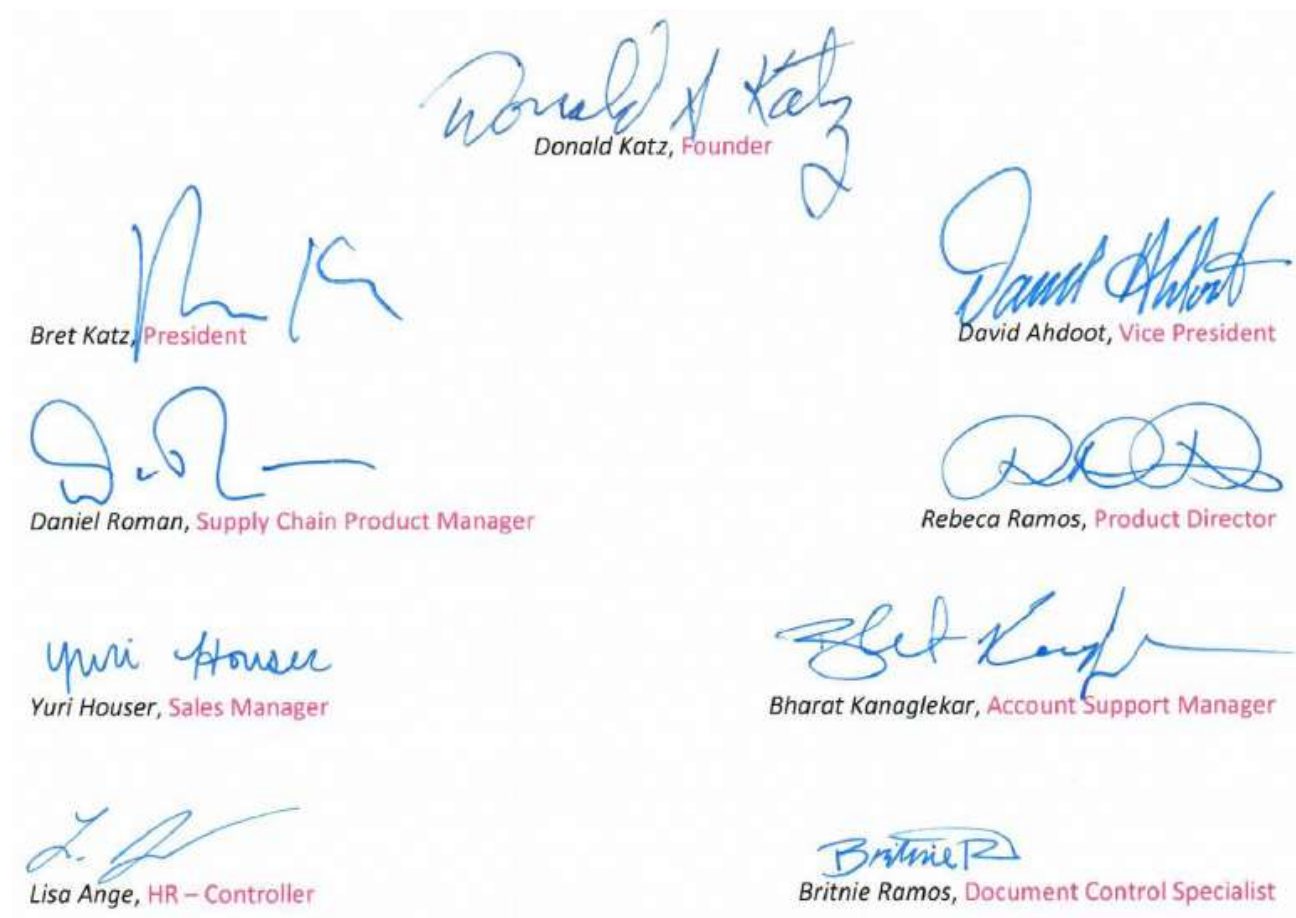 Donald A Katz
Donald Katz, Founder
David Ahdoot
Bret Katz, President
David Ahdoot, Vice President
Daniel Roman, Supply Chain Product Manager
Rebeca Ramos, Product Director
Yuri Houser
Yuri Houser, Sales Manager
Bharat Kanaglekar, Account Support Manager
L.
Britnie R
Lisa Ange, HR – Controller
Britnie Ramos, Document Control Specialist